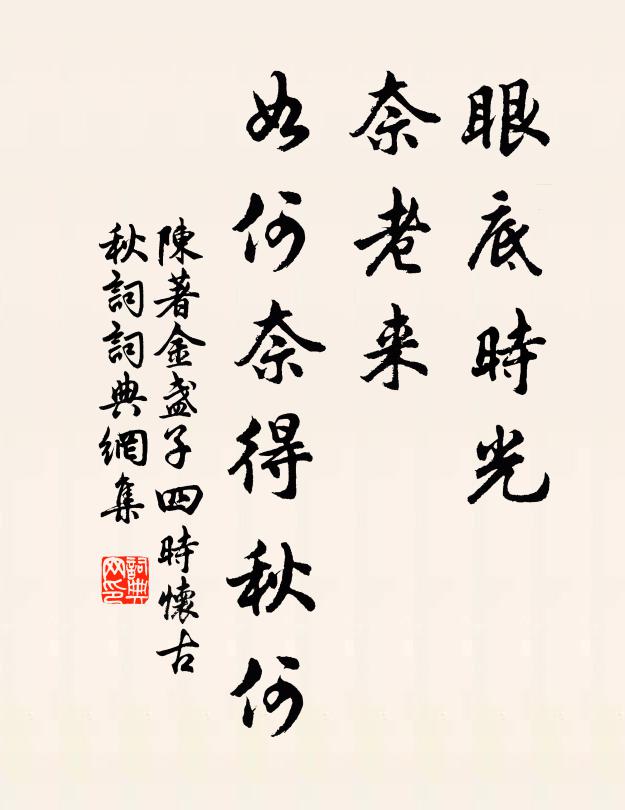 眼底時光
奈老来
如何奈得秋何
陳著金盞子四時懷古
秋詞詞典網集
詞典网印